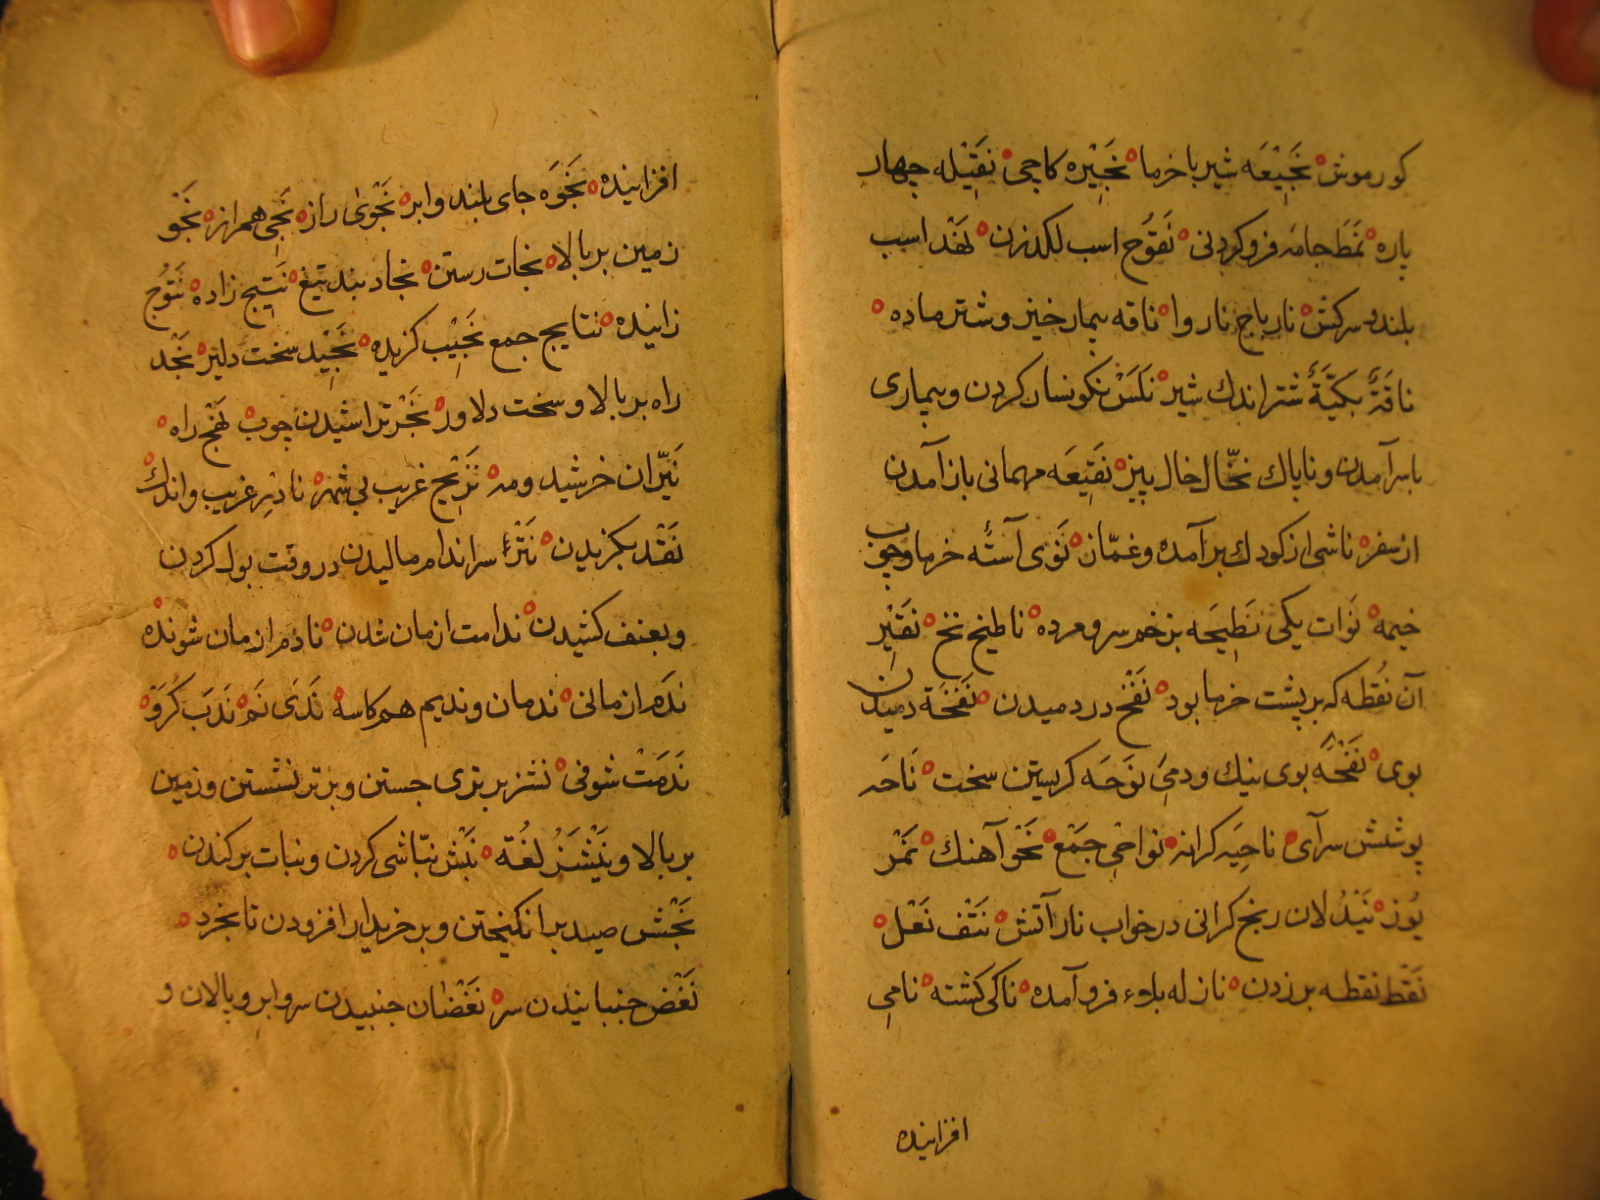 کورموش نَجِیْعَه شیر با خرما نَجِیْره کاچی نَقِیْله چهار
پاره نَمَط جامه فرو کردنی نَفُوْح اسب لکدزن نَهْد اسب
بلند و سرکش نارباج ناروا ناقه بیمار خیز و شتر ماده
ناقَةٌ بَکِیَّةٌ شتر اندك شیر نَکَسْ نکونسار کردن و بیماری
باسر آمدن و ناپاك نَخّال خال بیز نَقِیْعَه مهمانی باز آمدن
از سفر ناشی از کودك برآمده و غمّان نَوی آستُه خرما و چوب
خیمه نَوات یکی نَطِیْحَه بزخم سرو مرده ناطیح نخ نَقِیْر
آن نُقطه که بر پشت خرما بود نَفْخ در دمیدن نَفْخَة دمیدن
بوی نَفْحَه بوی نیك و دمی نَوْحَه کریستن سخت نَاحَه
پوشش سرآی ناحِیَه کرانه نواحی جَمْع نَحْو آهنك نَمْر
یُوز نَیْدُلان رنج کرانی در خواب نار آتش نَتْف نَعْل
نَقْط نقطه بر زدن نازله بلاء فرو آمده ناکی کشته نامی
افزاینده
افزاینده نَجْوَه جای بلند و ابر نَجْوی راز نَجِی همراز نَجْو
زمین بر بالا نجات رستن نجاد بند تیغ نَتِیج زاده نَتُوج
زاینده نتایج جمع نَجِیْب کزیده نَجِیْد سخت دلیر نَجْد
راه بر بالا و سخت دلاور نَجْر تراشیدن چوب نَهْج راه
نَیِّران خرشید و مه نَزِیْح غریب بی شهر نادِر غریب و اندك
نَقْد بکزیدن نَتْراً سر اندام مالیدن در وقت بول کردن
و بعنف کشیدن ندامت ازمان شدن نادم ازمان شونده
نَدَم ازمانی ندمان و ندیم هم کاسه نَدَی نَم نَدَب کُرَوْ
نَدِمَتْ شوفی نشز بر بزی جستن و برتر نشستن و زمین
بر بالا و یَنْشَزُ لُغَة نَبْش نبّاشی کردن و نبات برکندن
نَجْش صید برانکیختن و بر خریدار افزودن تا بخرد
نَغْض جنبانیدن سر نَغَضان جنبیدن سر و ابر و پالان و